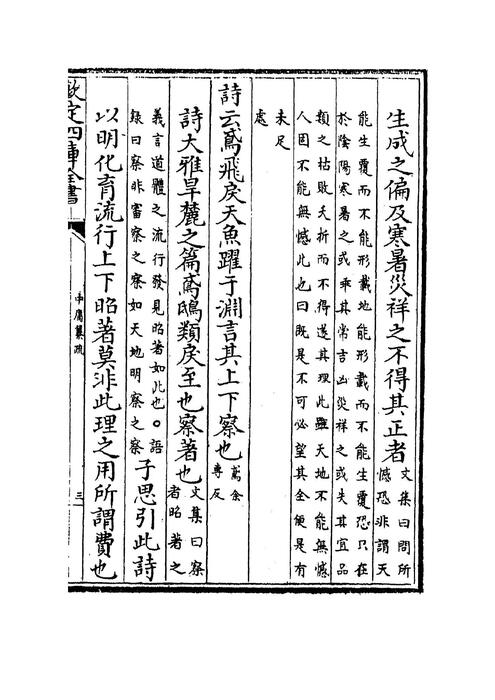 生成之偏及寒暑災祥之不得其正者
文集曰問所
憾恐非謂天
能生覆而不能形載地能形載而不能生覆恐只在
於陰陽寒暑之或乖其常吉凶災祥之或失其宜品
類之枯敗夭折而不得遂其理此雖天地不能無憾
人固不能無憾此也曰既是不可必望其全便是有
未足
處
詩云鳶飛戾天魚躍于淵言其上下察也
鳶余
專反
詩大雅旱麓之篇鳶鴟類戾至也察著也
文集曰察
者昭著之
義言道體之流行發見昭著如此也○語
錄曰察非審察之察如天地明察之察
子思引此詩
以明化育流行上下昭著莫非此理之用所謂費也
欽定四庫全書
中庸纂疏